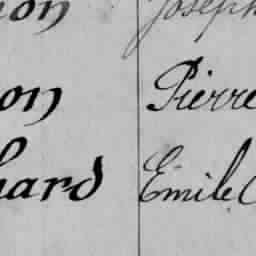 on Joseph
on Pierre
hard Emile